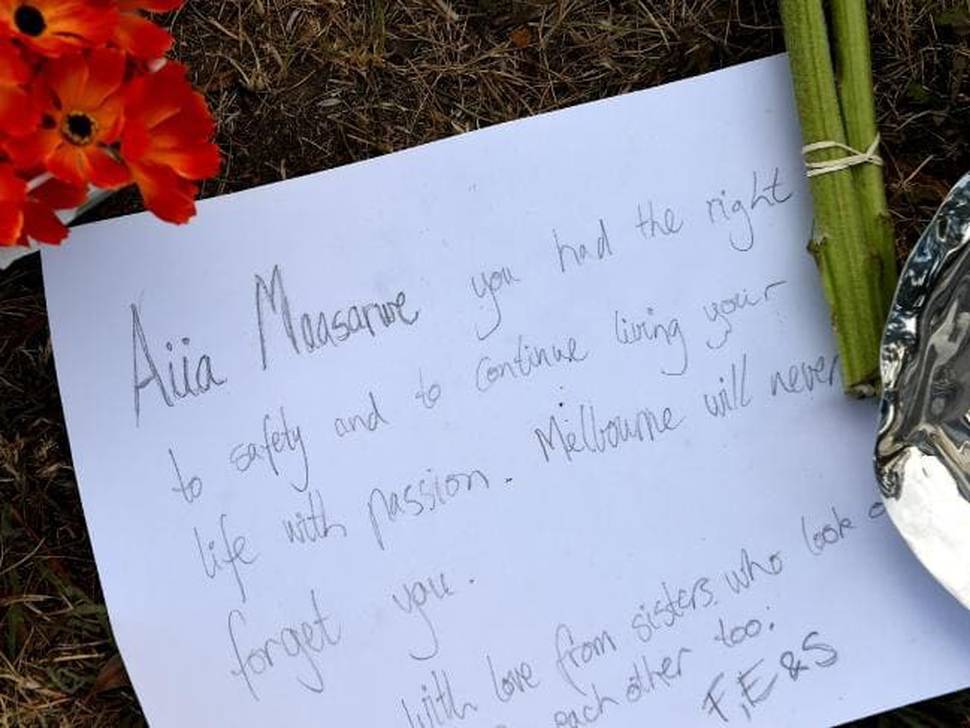 Aiia Maasarwe you had the right
to safety and to continue living your
life with passion. Melbourne will never
forget you.
With love from sisters who look
each other too.
F, E & S